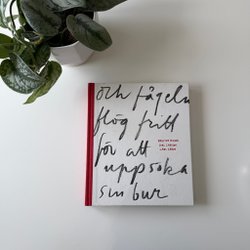 och fågeln
flög fritt
för att
uppsöka
sin bur